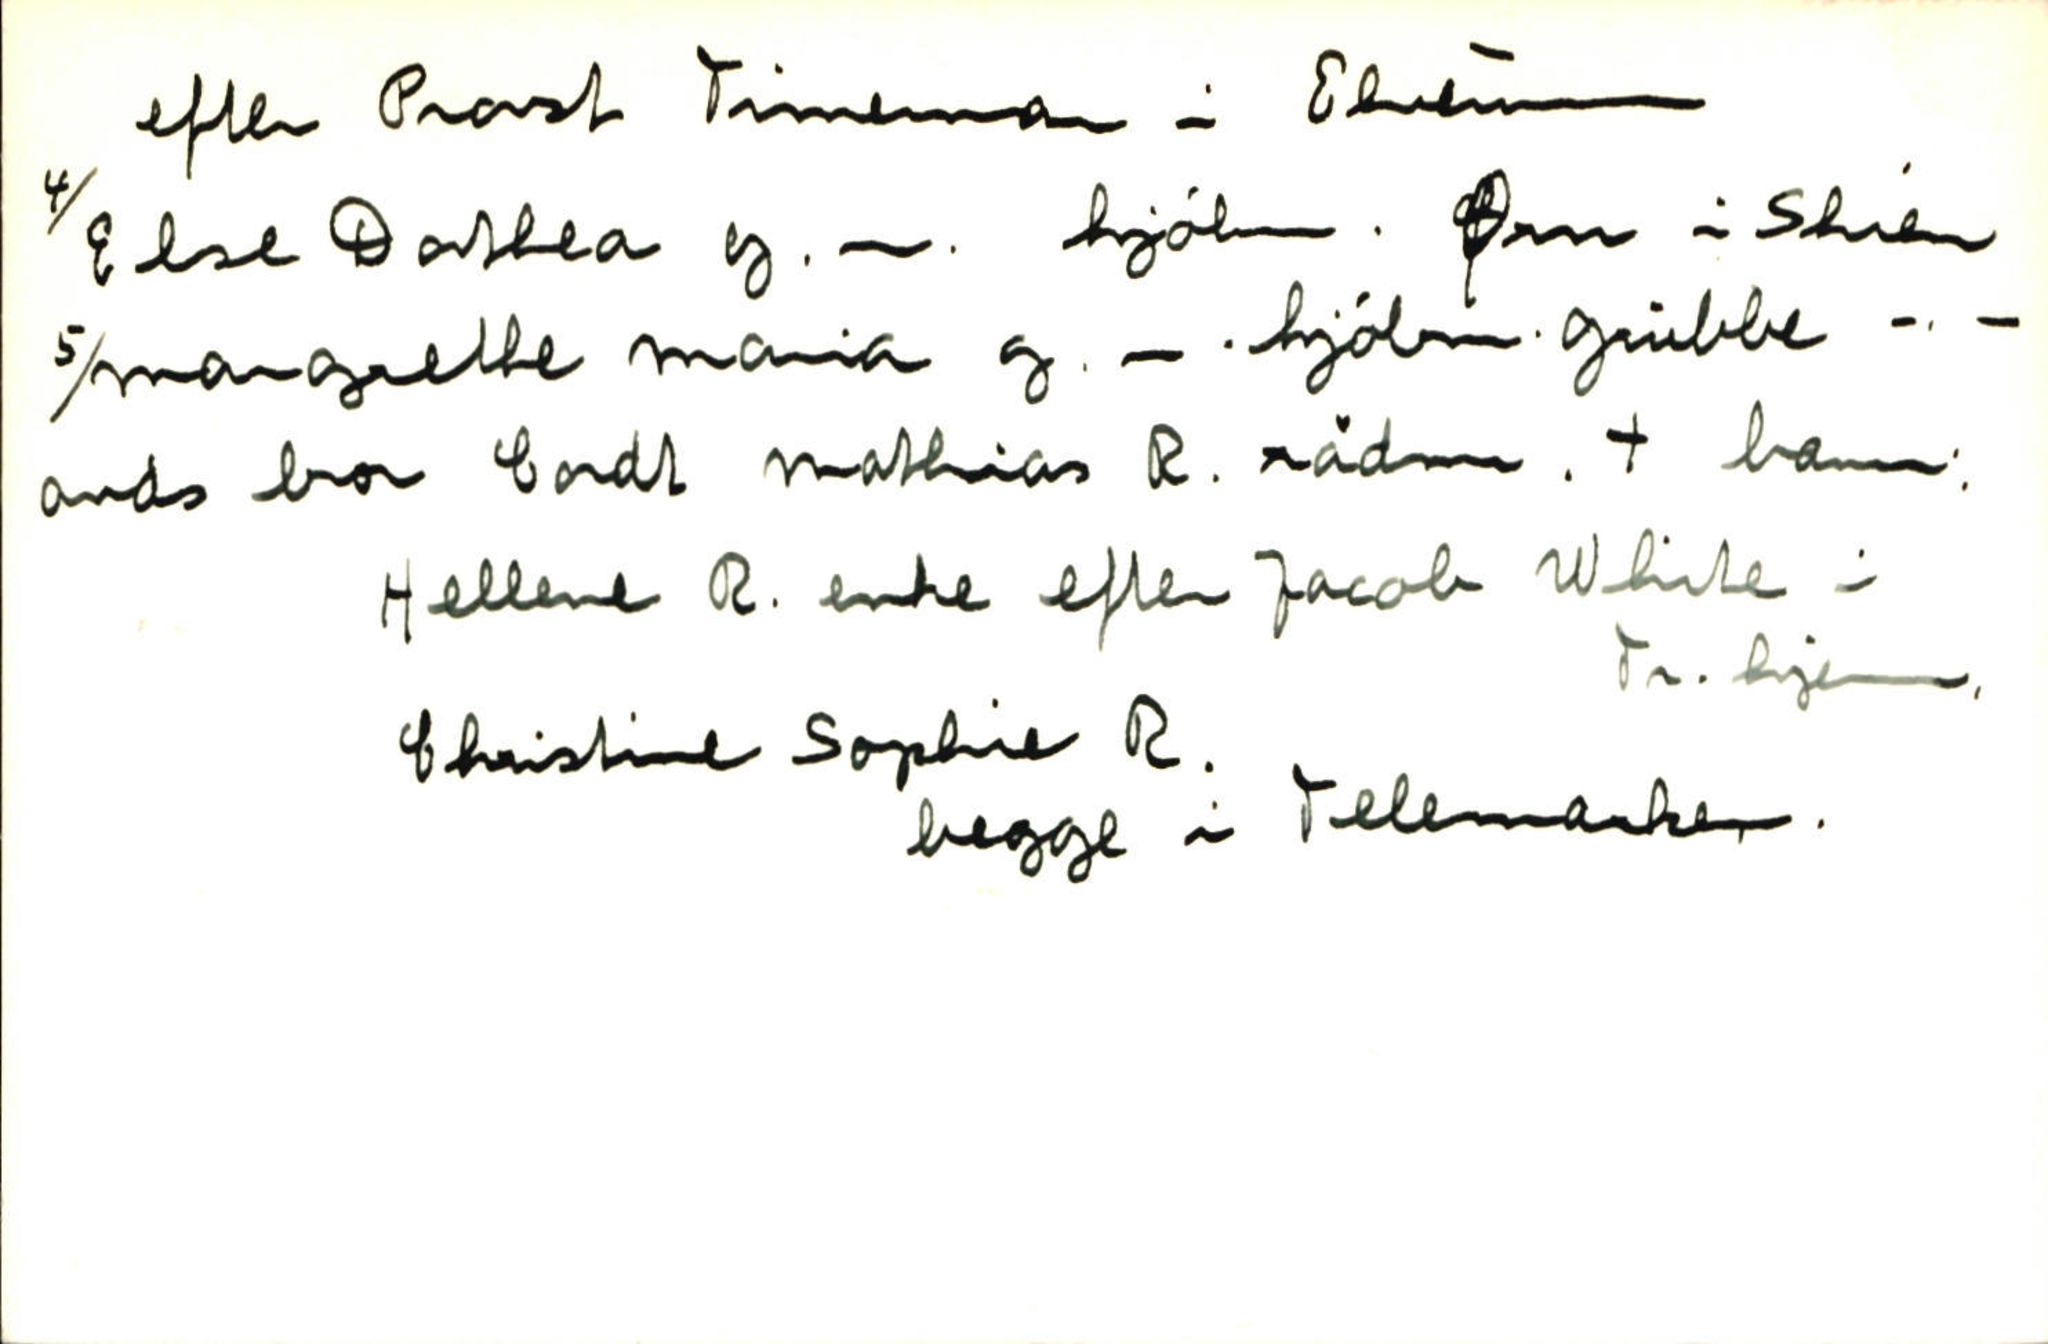 efter Provst Timeman i Elverum
4/ Else Dorthea g. m. kjøbm. Ørn i Skien
5/ Margrethe Maria g. m. kjøbm. Grübbe - . -
avds bror Cordt Mathias R. rådm. + barn:
Hellene R. enke efter Jacob White i
Tr. hjem.
Christine Sophie R.
begge i Telemarken.